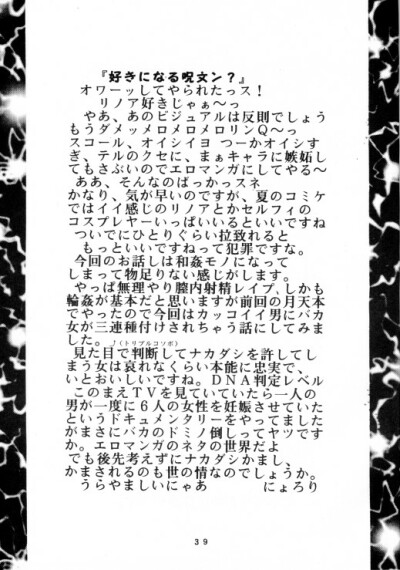 『好きになる呪文ン？』
オワーッしてやられたっス！
リノア好きじゃぁ～っ
やあ、あのビジュアルは反則でしょう
もうダメッメロメロメロリンＱ～っ
スコール、オイシイヨ つーかオイシす
ぎ、テルのクセに、まぁキャラに嫉妬し
てもさぶいのでエロマンガにしてやる～
ああ、そんなのばっかっスネ
かなり、気が早いのですが、夏のコミケ
ではイイ感じのリノアとかセルフィの
コスプレヤーいっぱいいるといいですね
ついでにひとりぐらい拉致れると
もっといいですねって犯罪ですな。
今回のお話しは和姦モノになって
しまって物足りない感じがします。
やっぱ無理やり膣内射精レイプ，しかも
輪姦が基本だと思いますが前回の月天本
でやったので今回はカッコイイ男にバカ
女が三連種付けされちゃう話にしてみま
した。↑(トリプルコソボ)
見た目で判断してナカダシを許してし
まう女は哀れなくらい本能に忠実で、
いとおしいですね。ＤＮＡ判定レベル
このまえＴＶを見ていていたら一人の
男が一度に６人の女性を妊娠させていた
というドキュメンタリーをやってました
がまさにバカのドミノ倒しってヤツです
か。エロマンガのネタの世界だよ
でも後先考えずにナカダシかまし、
かまされるのも世の情なのでしょうか。
うらやましいにゃあ にょろり
39